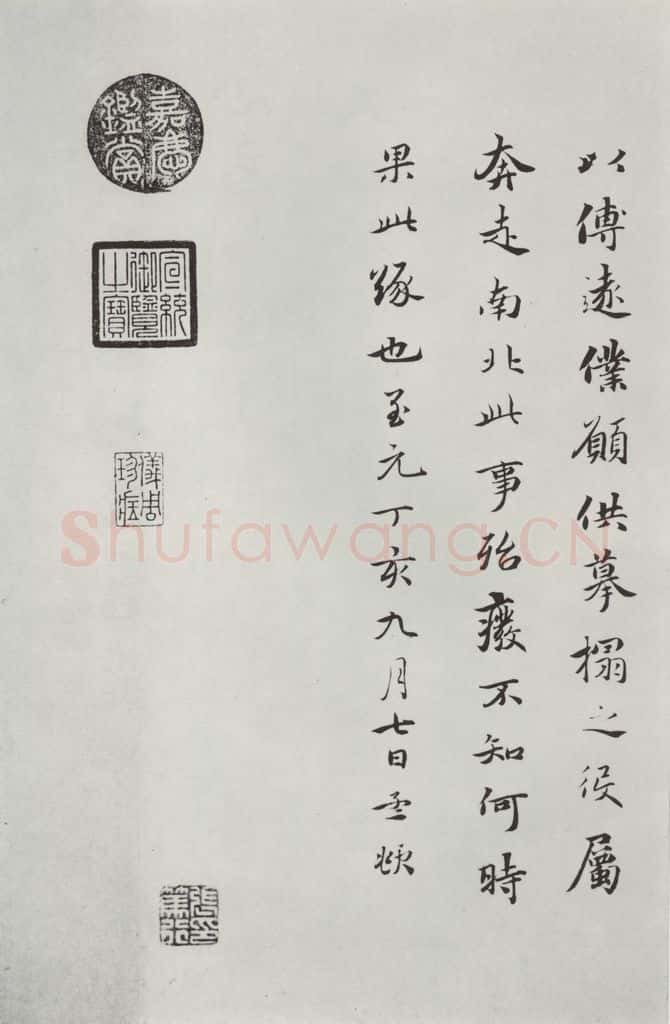 以傳遠僕願供摹搨之役屬
奔走南北此事殆廢不知何時
果此緣也至元丁亥九月七日孟頫
嘉慶鑑賞
宣統御覽之寶
儀周珍藏
Shufawang.CN